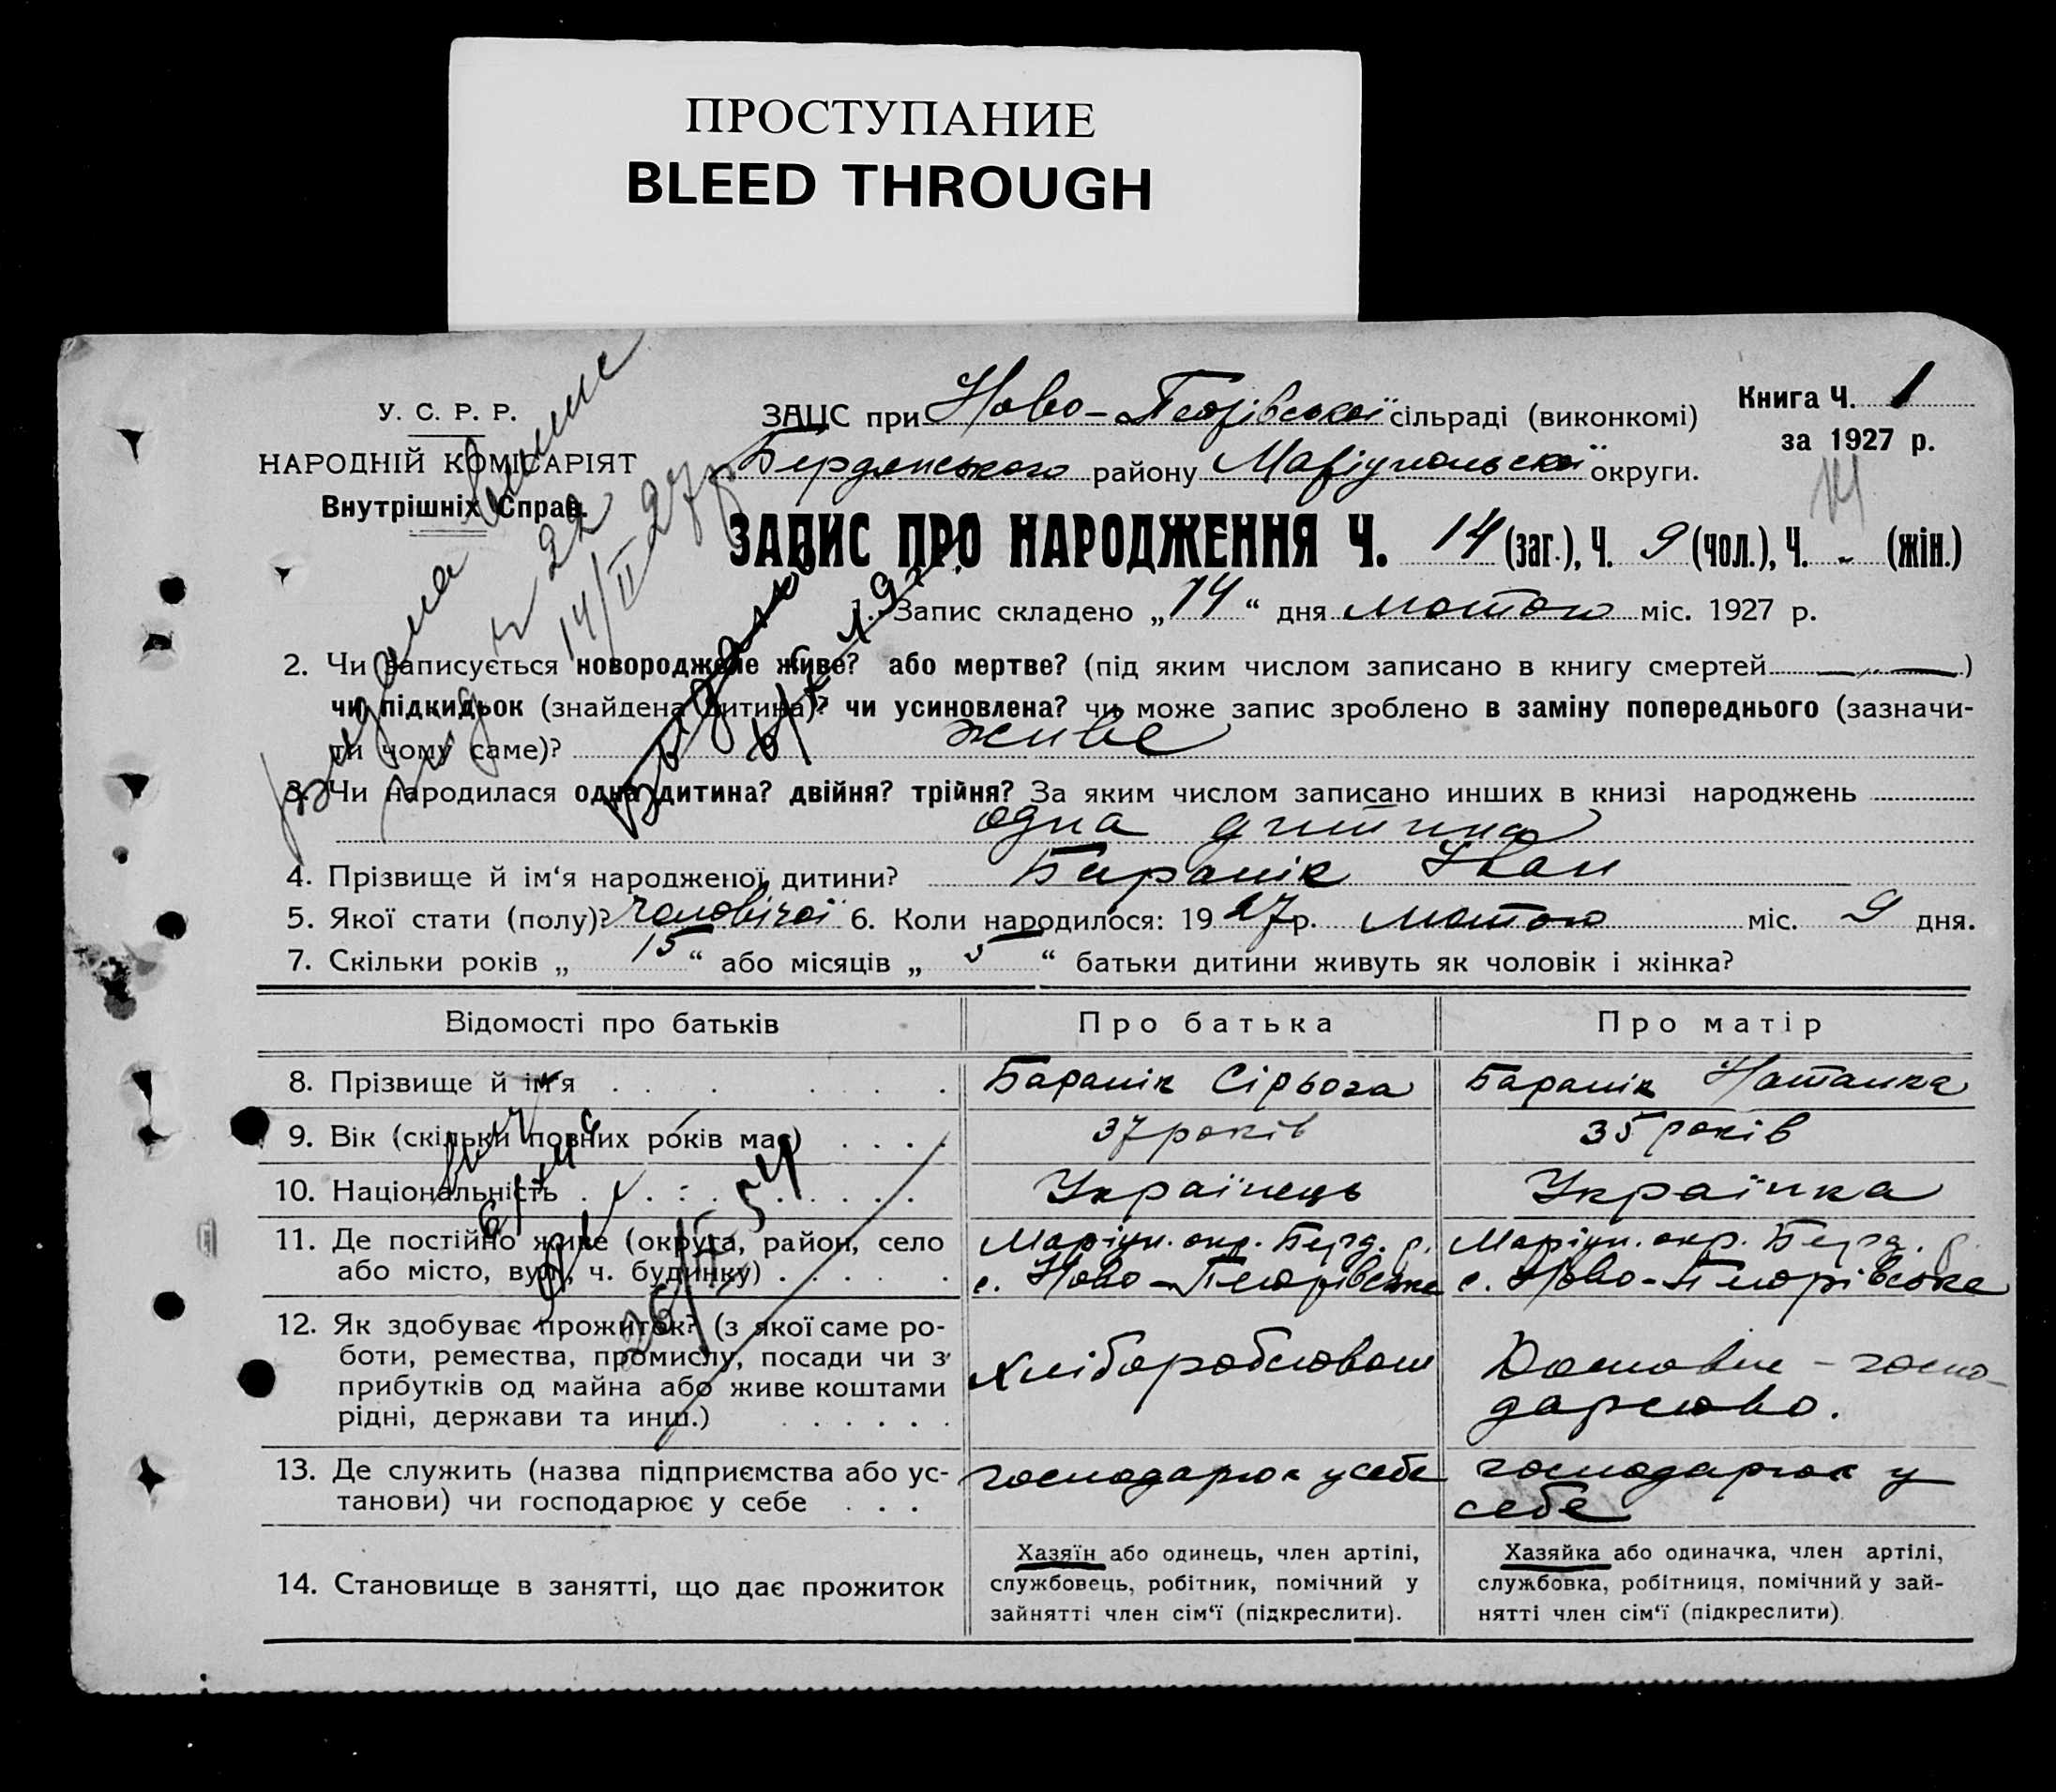 ПРОСТУПАНИЕ
BLEED THROUGH
У. С. Р. Р.
НАРОДНІЙ КОМІСАРІЯТ
Внутрішніх Справ.
ЗАЦС при Ново- сільраді (виконкомі)
Бердянського району Маріупольскої округи.
Книга Ч. 1
за 1927 р.
14
ЗАПИС ПРО НАРОДЖЕННЯ Ч. 14 (заг.), Ч. 9 (чол.), Ч. - (жін.)
1. Запис складено „14“ дня лютого міс. 1927 р.
2. Чи записується новороджене живе? або мертве? (під яким числом записано в книгу смертей)
чи підкидьок (знайдена дитина)? чи усиновлена? чи може запис зроблено в заміну попереднього (зазначи-
ти чому саме)? живе
3. Чи народилася одна дитина? двійня? трійня? За яким числом записано инших в книзі народжень
одна дитина
4. Прізвище й ім‘я народженої дитини? Баранік Іван
5. Якої стати (полу)? чоловічої 6. Коли народилося: 1927 р. лютого міс. 9 дня.
7. Скільки років „15“ або місяців „5“ батьки дитини живуть як чоловік і жінка?
Відомості про батьків Про батька Про матір
8. Прізвище й ім‘я Баранік Сірьога Баранік Наталка
9. Вік (скільки повних років має) 37 років 35 років
10. Національність Українець Українка
11. Де постійно живе (округа, район, село Маріуп. окр. Берд. р. Маріуп. окр. Берд. р.
або місто, вул., ч. будинку) с. Ново- с. Ново-
12. Як здобуває прожиток? (з якої саме ро-
боти, ремества, промислу, посади чи з
прибутків од майна або живе коштами
рідні, держави та инш.)
Хліборобством
Домовне - госпо-
дарство.
13. Де служить (назва підприємства або ус- господарює у себе господарює у
танови) чи господарює у себе себе
14. Становище в занятті, що дає прожиток
Хазяїн або одинець, член артілі,
службовець, робітник, помічний у
зайнятті член сім‘ї (підкреслити).
Хазяйка або одиначка, член артілі,
службовка, робітниця, помічний у зай-
нятті член сім‘ї (підкреслити)
14/II 27 р.